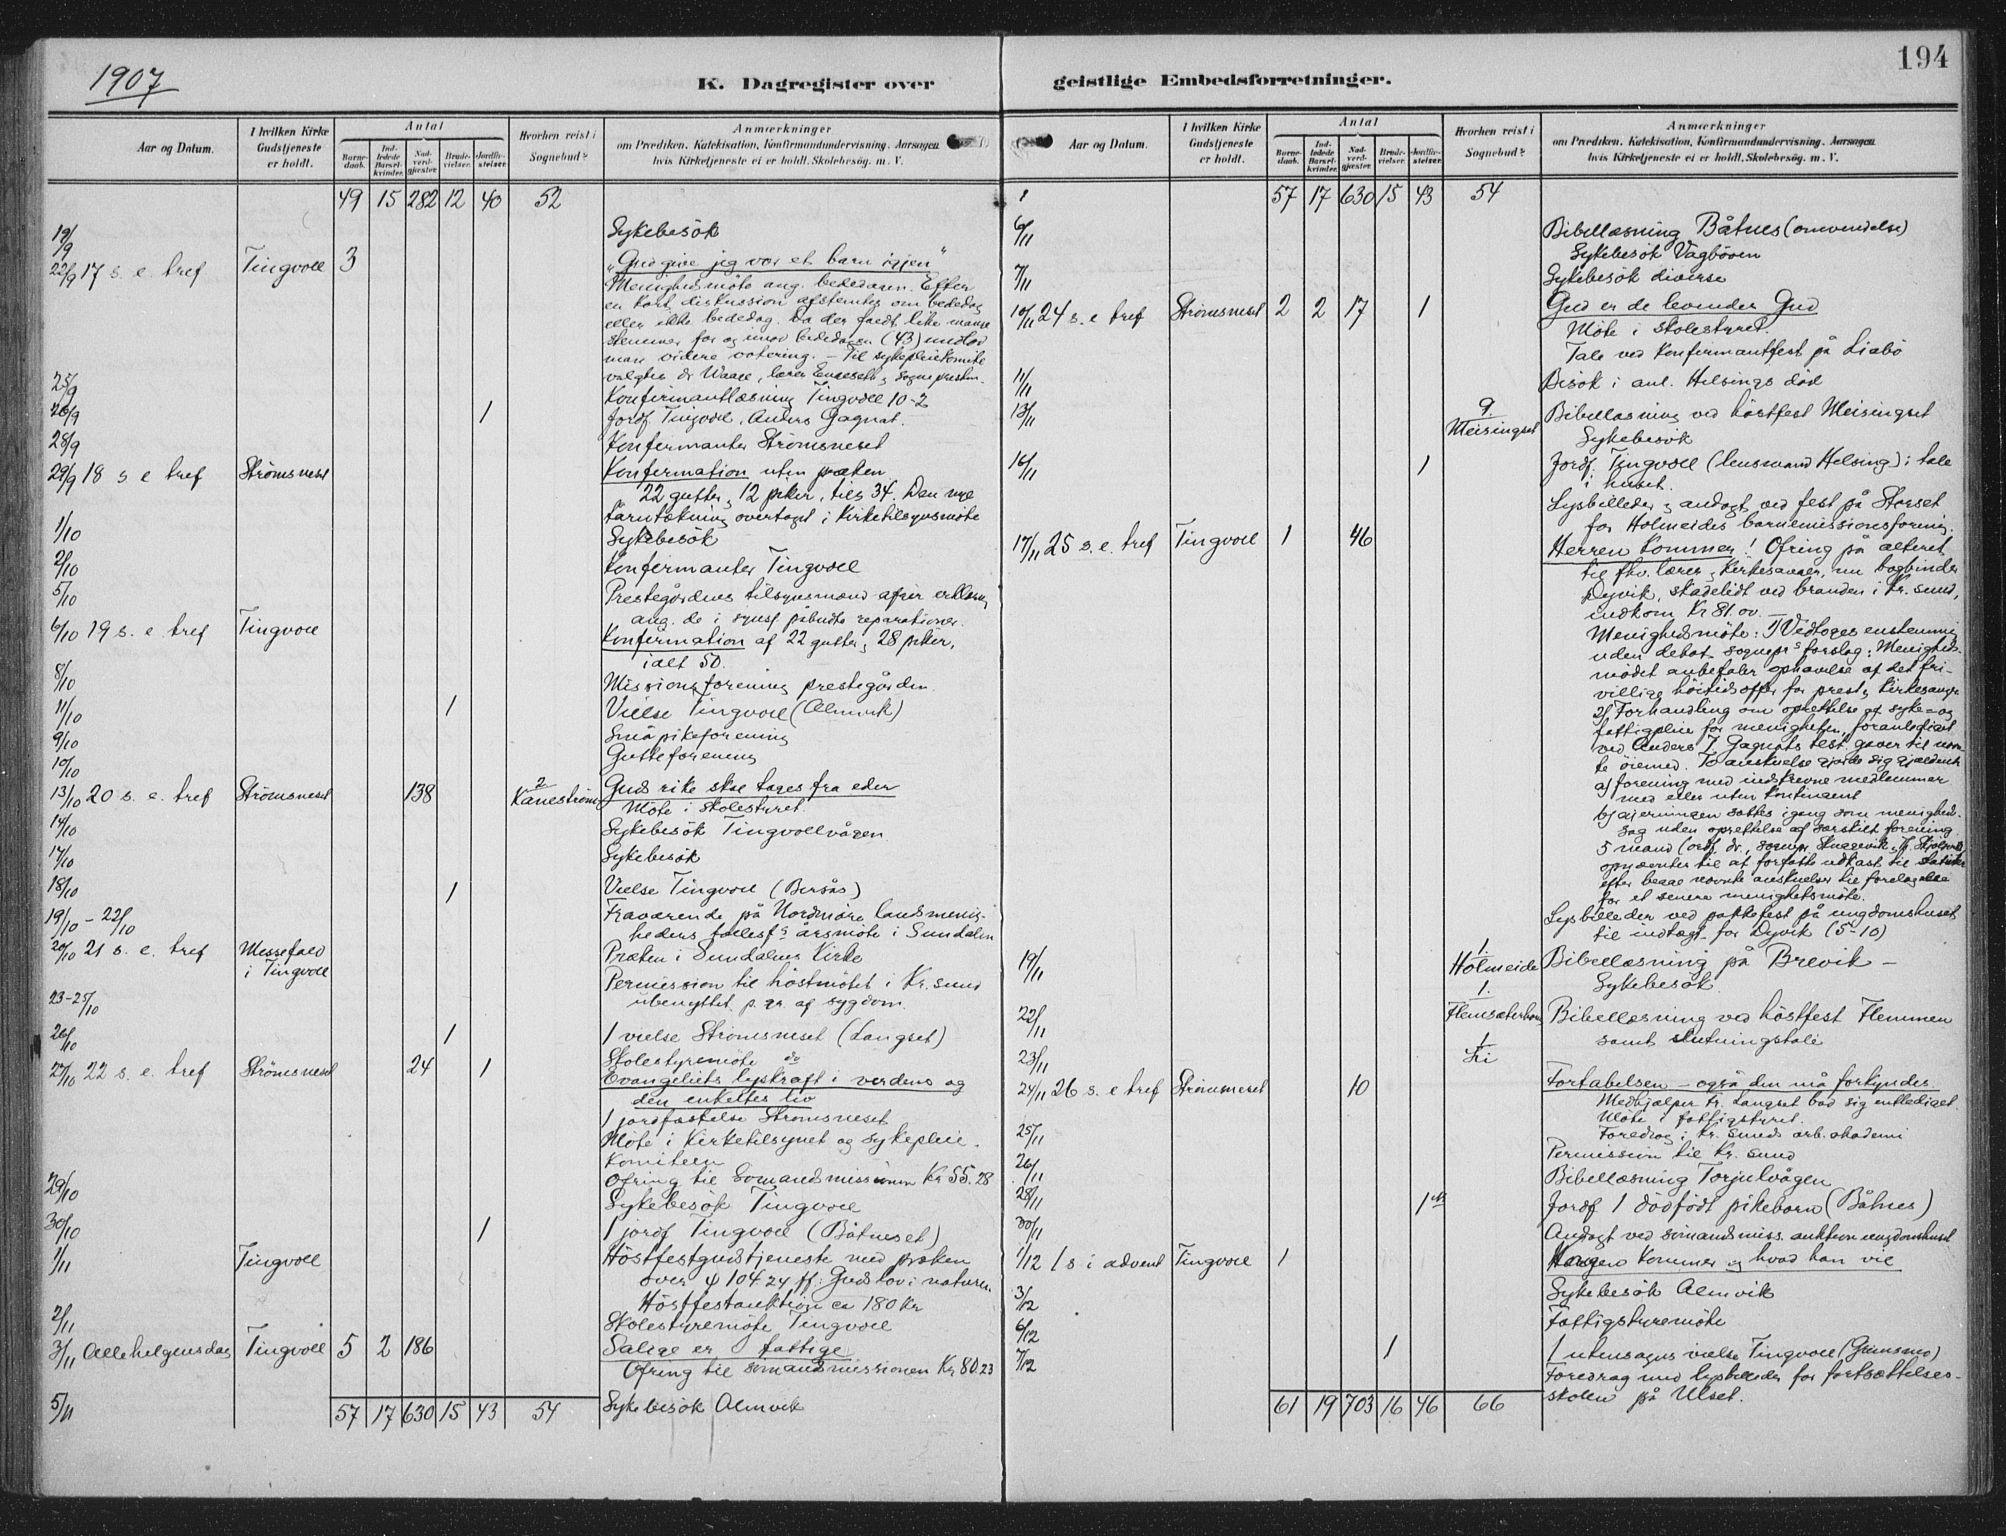 194
1907
K. Dagregister over geistlige Embedsforretninger.
Aar og Datum.
I hvilken Kirke Gudstjeneste er holdt.
Antal
Barnedaab.
Indledede Barselkvinder.
Nadverdgjæster.
Brudevielser.
Jordfæstelser.
Hvorhen reist i Sognebud?
Anmærkninger
om Prædiken, Katekisation, Konfirmandundervisning, Aarsagen
hvis Kirketjeneste ei er holdt, Skolebesøg. m. V.
49 15 282 12 40 52
19/9 Sykebesök
22/9 17 s. e. tref Tingvoll 3 „Gud give jeg var et barn igjen"
Menighedsmöte ang. bededagen. Efter
en kort diskussion afstemtes om bededag
eller ikke bededag. Da der faldt like mange
stemmer for og imod bededagen (43) undlod
man videre votering. – Til sykepleiekomite
valgtes dr Waage, lærer Engeseth, sognepresten.
25/9 Konfirmantlæsning Tingvoll 10-2
26/9 1 Jordf Tingvoll, Anders Gagnat.
28/9 Konfirmanter Strömsneset
29/9 18 s e tref Strömsneset Konfirmation uten præken
22 gutter, 12 piker, tils 34. Den nye
tårntækning overtaget i Kirketilsynsmöte
1/10 Sykebesök
2/10 Konfirmanter Tingvoll
5/10 Prestegårdens tilsynsmænd afgir erklæring
ang. de i synsf påbudte reparationer.
6/10 19 s. e. tref Tingvoll Konfirmation af 22 gutter, 28 piker,
ialt 50.
8/10 Missionsforening prestegården.
11/10 1 Vielse Tingvoll (Almvik)
9/10 Småpikeforening
10/10 Gutteforening
13/10 20 s. e. tref Strömsneset 138 2 Kaneström Guds rike skal tages fra eder
Möte i skolestyret
14/10 Sykebesök Tingvollvågen
17/10 Sykebesök
18/10 1 Vielse Tingvoll (Bersås)
19/10 – 22/10 Fraværende på Nordmöre landsmenig-
heders fællesfs årsmöte i Sundalen
20/10 21 s. e. tref Messefald i Tingvoll Præken i Sundalens Kirke
23-25/10 Permission til höstmötet i Kr. sund
ubenyttet p. gr. af sygdom.
26/10 1 1 vielse Strömsneset (Langset)
27/10 22 s. e. tref Strömsneset 24 1 Skolestyremöte do
Evangeliets lyskraft i verdens og
den enkeltes liv
1 jordfæstelse Strömsneset
Möte i Kirketilsynet og sykepleie-
komiteen
Ofring til sömandsmissionen Kr 55.28
29/10 Sykebesök Tingvoll
30/10 1 1 jordf Tingvoll (Båtneset)
1/11 Tingvoll Höstfestgudstjeneste med præken
over ψ 104 24 ff: Guds lov i naturen.
Höstfestauktion ca 180 kr
2/11 Skolestyremöte Tingvoll
3/11 Allehelgensdag Tingvoll 5 2 186 Salige er fattige
Ofring til sömandsmissionen Kr 80.23
5/11 Sykebesök Almvik
57 17 630 15 43 54
Aar og Datum.
I hvilken Kirke Gudstjeneste er holdt.
Antal
Barnedaab.
Indledede Barselkvinder.
Nadverdgjæster.
Brudevielser.
Jordfæstelser.
Hvorhen reist i Sognebud?
Anmærkninger
om Prædiken, Katekisation, Konfirmandundervisning, Aarsagen
hvis Kirketjeneste ei er holdt, Skolebesøg. m. V.
57 17 630 15 43 54
6/11 Bibellæsning Båtnes (omvendelse)
Sykebesök Vågböen
7/11 Sykebesök diverse
10/11 24 s. e tref Strömsneset 2 2 17 1 Gud er de levendes Gud
Möte i skolestyret.
Tale ved konfirmantfest på Liabö
11/11 Besök i anl. Helsings död
13/11 9. Meisingset Bibellæsning ved höstfest Meisingset
Sykebesök
16/11 1 Jordf. Tingvoll (lensmand Helsing); tale
i huset.
Lysbilleder & andagt ved fest på Storset
for Holmeides barnemissionsforening.
17/11 25 s. e. tref Tingvoll 1 46 Herren kommer! Ofring på alteret
til fhv. lærer, kirkesanger, nu bogbinder
Dyvik, skadelidt ved branden i Kr. sund,
indkom Kr 81. ov. –
Menighedsmöte: 1) Vedtoges enstemmig
uden debat sognepr s forslag: Menigheds-
mödet anbefaler ophævelse af det fri-
villige höitidsoffer for prest & kirkesanger
2) Forhandling om oprettelse af syke- og
fattigpleie for menigheten, foranlediget
ved Anders J. Gagnats test. gaver til nævn-
te öiemed. To anskuelser gjorde sig gjældende
a) forening med indskrevne medlemmer
med eller uten kontingent
b) gjerningen sættes igang som menigheds-
sag uden oprettelse af særskilt forening.
5 mand (ordf. dr, sognepr
opnævntes til at forfatte udkast til statuter
efter begge nævnte anskuelser til forelæggelse
for et senere menighetsmöte.
Lysbilleder ved pakkefest på ungdomshuset
til indtægt for Dyvik (5-10)
19/11 1. Holmeide Bibellæsning på Brevik –
Sykebesök
22/11 1. Flemsæterhaug Bibellæsning ved höstfest Flemmen
samt slutningstale
23/11 1 Li
24/11 26 s. e tref Strömsneset 10 Fortabelsen – også den må forkyndes.
Medhjælper Tr. Langset bad sig entlediget.
Möte i fattigstyret.
25/11 Foredrag i Kr. sunds arb. akademi
Permission til Kr. sund
26/11 Bibellæsning Torjulvågen
28/11 1 Jordf 1 dödfödt pikebarn (Båtnes)
30/11 Andagt ved sömandsmiss. auktion ungdomshuset
1/12 1 s i advent Tingvoll 1 kommer og hvad han vil
3/12 Sykebesök Almvik
6/12 Fattigstyremöte
7/12 1 1 utensogns vielse Tingvoll (Grimsmo)
Foredrag med lysbilleder for fortsættelses-
skolen på Ulset.
61 19 703 16 46 66